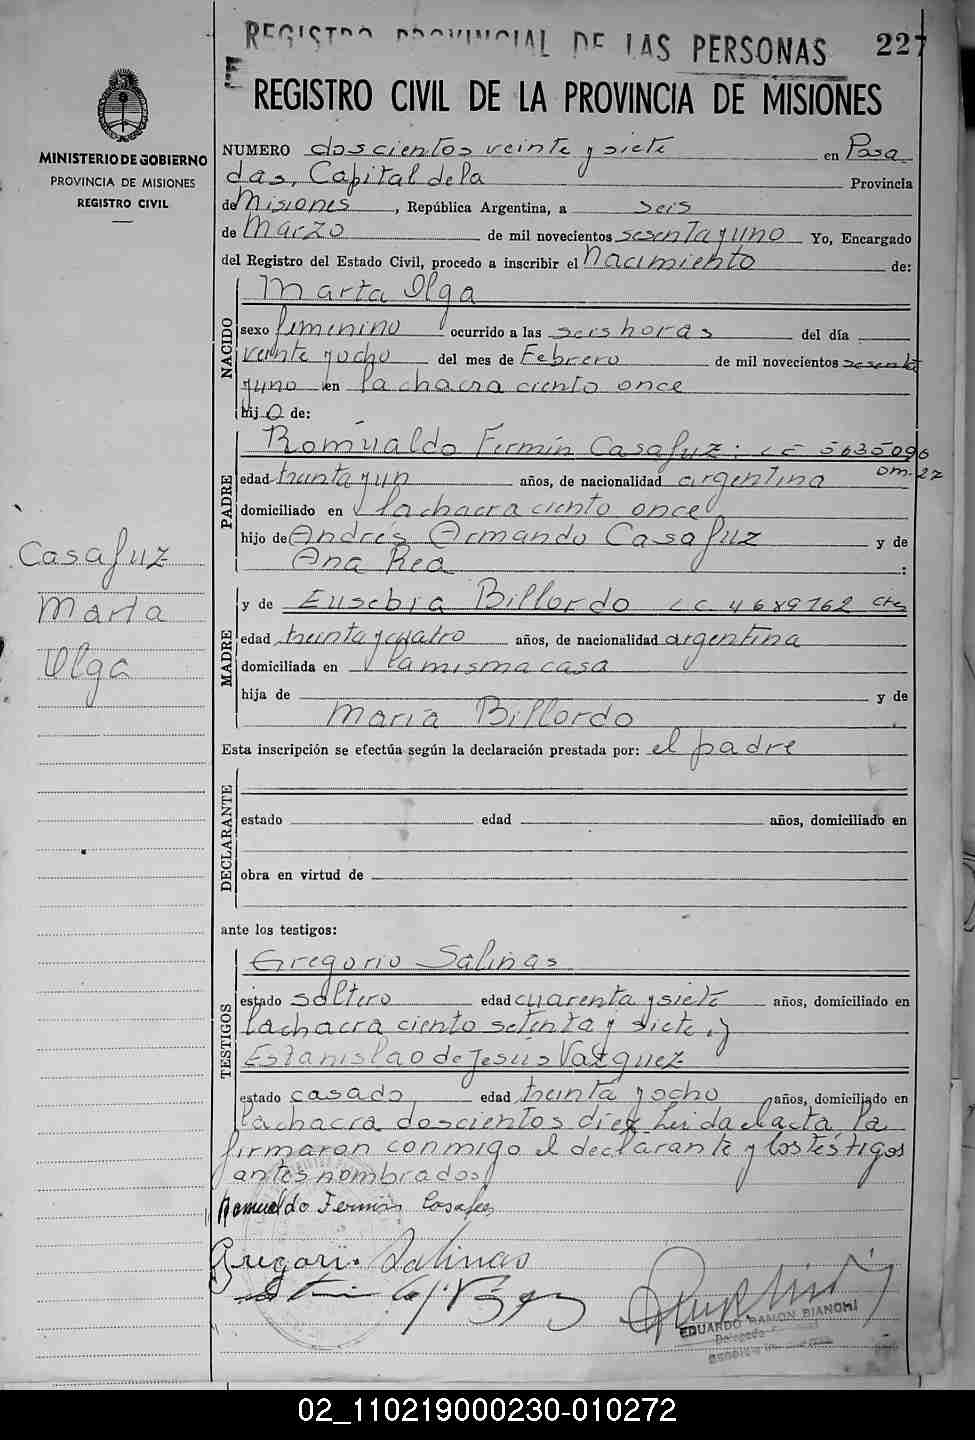 REGISTRO PROVINCIAL DE LAS PERSONAS
227
REGISTRO CIVIL DE LA PROVINCIA DE MISIONES
MINISTERIO DE GOBIERNO
PROVINCIA DE MISIONES
REGISTRO CIVIL
NUMERO doscientos veinte y siete en Posa
das, Capital de la Provincia
de Misiones, República Argentina, a seis
de Marzo de mil novecientos sesenta y uno Yo, Encargado
del Registro del Estado Civil, procedo a inscribir el nacimiento de:
NACIDO
Marta Olga
sexo femenino ocurrido a las seis horas del día
veinte y ocho del mes de Febrero de mil novecientos sesenta
y uno en la chacra ciento once
hija de:
PADRE
Romualdo Fermín Casafuz: LC 5635096
DM. 27
edad treinta y un años, de nacionalidad argentina
domiciliado en la chacra ciento once
hijo de Andrés Armando Casafuz y de
Ana Rea :
MADRE
y de Eusebia Billordo LC 4689762
edad treinta y cuatro años, de nacionalidad argentina
domiciliada en la misma casa
hija de y de
María Billordo
Casafuz
Marta
Olga
Esta inscripción se efectúa según la declaración prestada por: el padre
DECLARANTE
estado edad años, domiciliado en
obra en virtud de
ante los testigos:
TESTIGOS
Gregorio Salinas
estado soltero edad cuarenta y siete años, domiciliado en
la chacra ciento setenta y siete, y
Estanislao de Jesús Vazquez
estado casado edad treinta y ocho años, domiciliado en
la chacra doscientos diez Leida el acta la
firmaron conmigo el declarante y los testigos
antes nombrados
Romualdo Fermín Casafuz
Gregorio Salinas
EDUARDO RAMON BIANCHI
Delegado
02_110219000230-010272